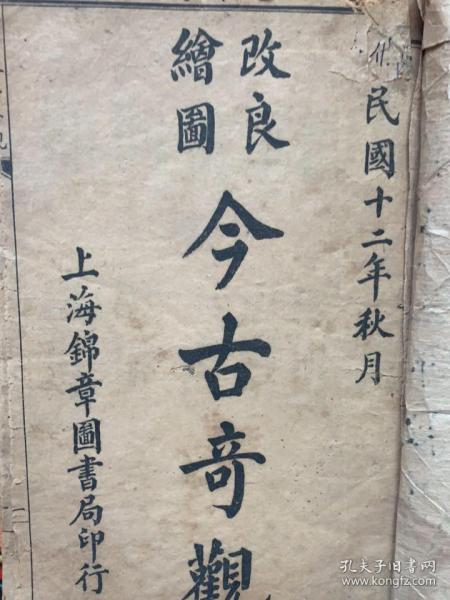 民國十二年秋月
改良
繪圖
今古奇觀
上海錦章圖書局印行
孔夫子旧书网
www.kongfz.com